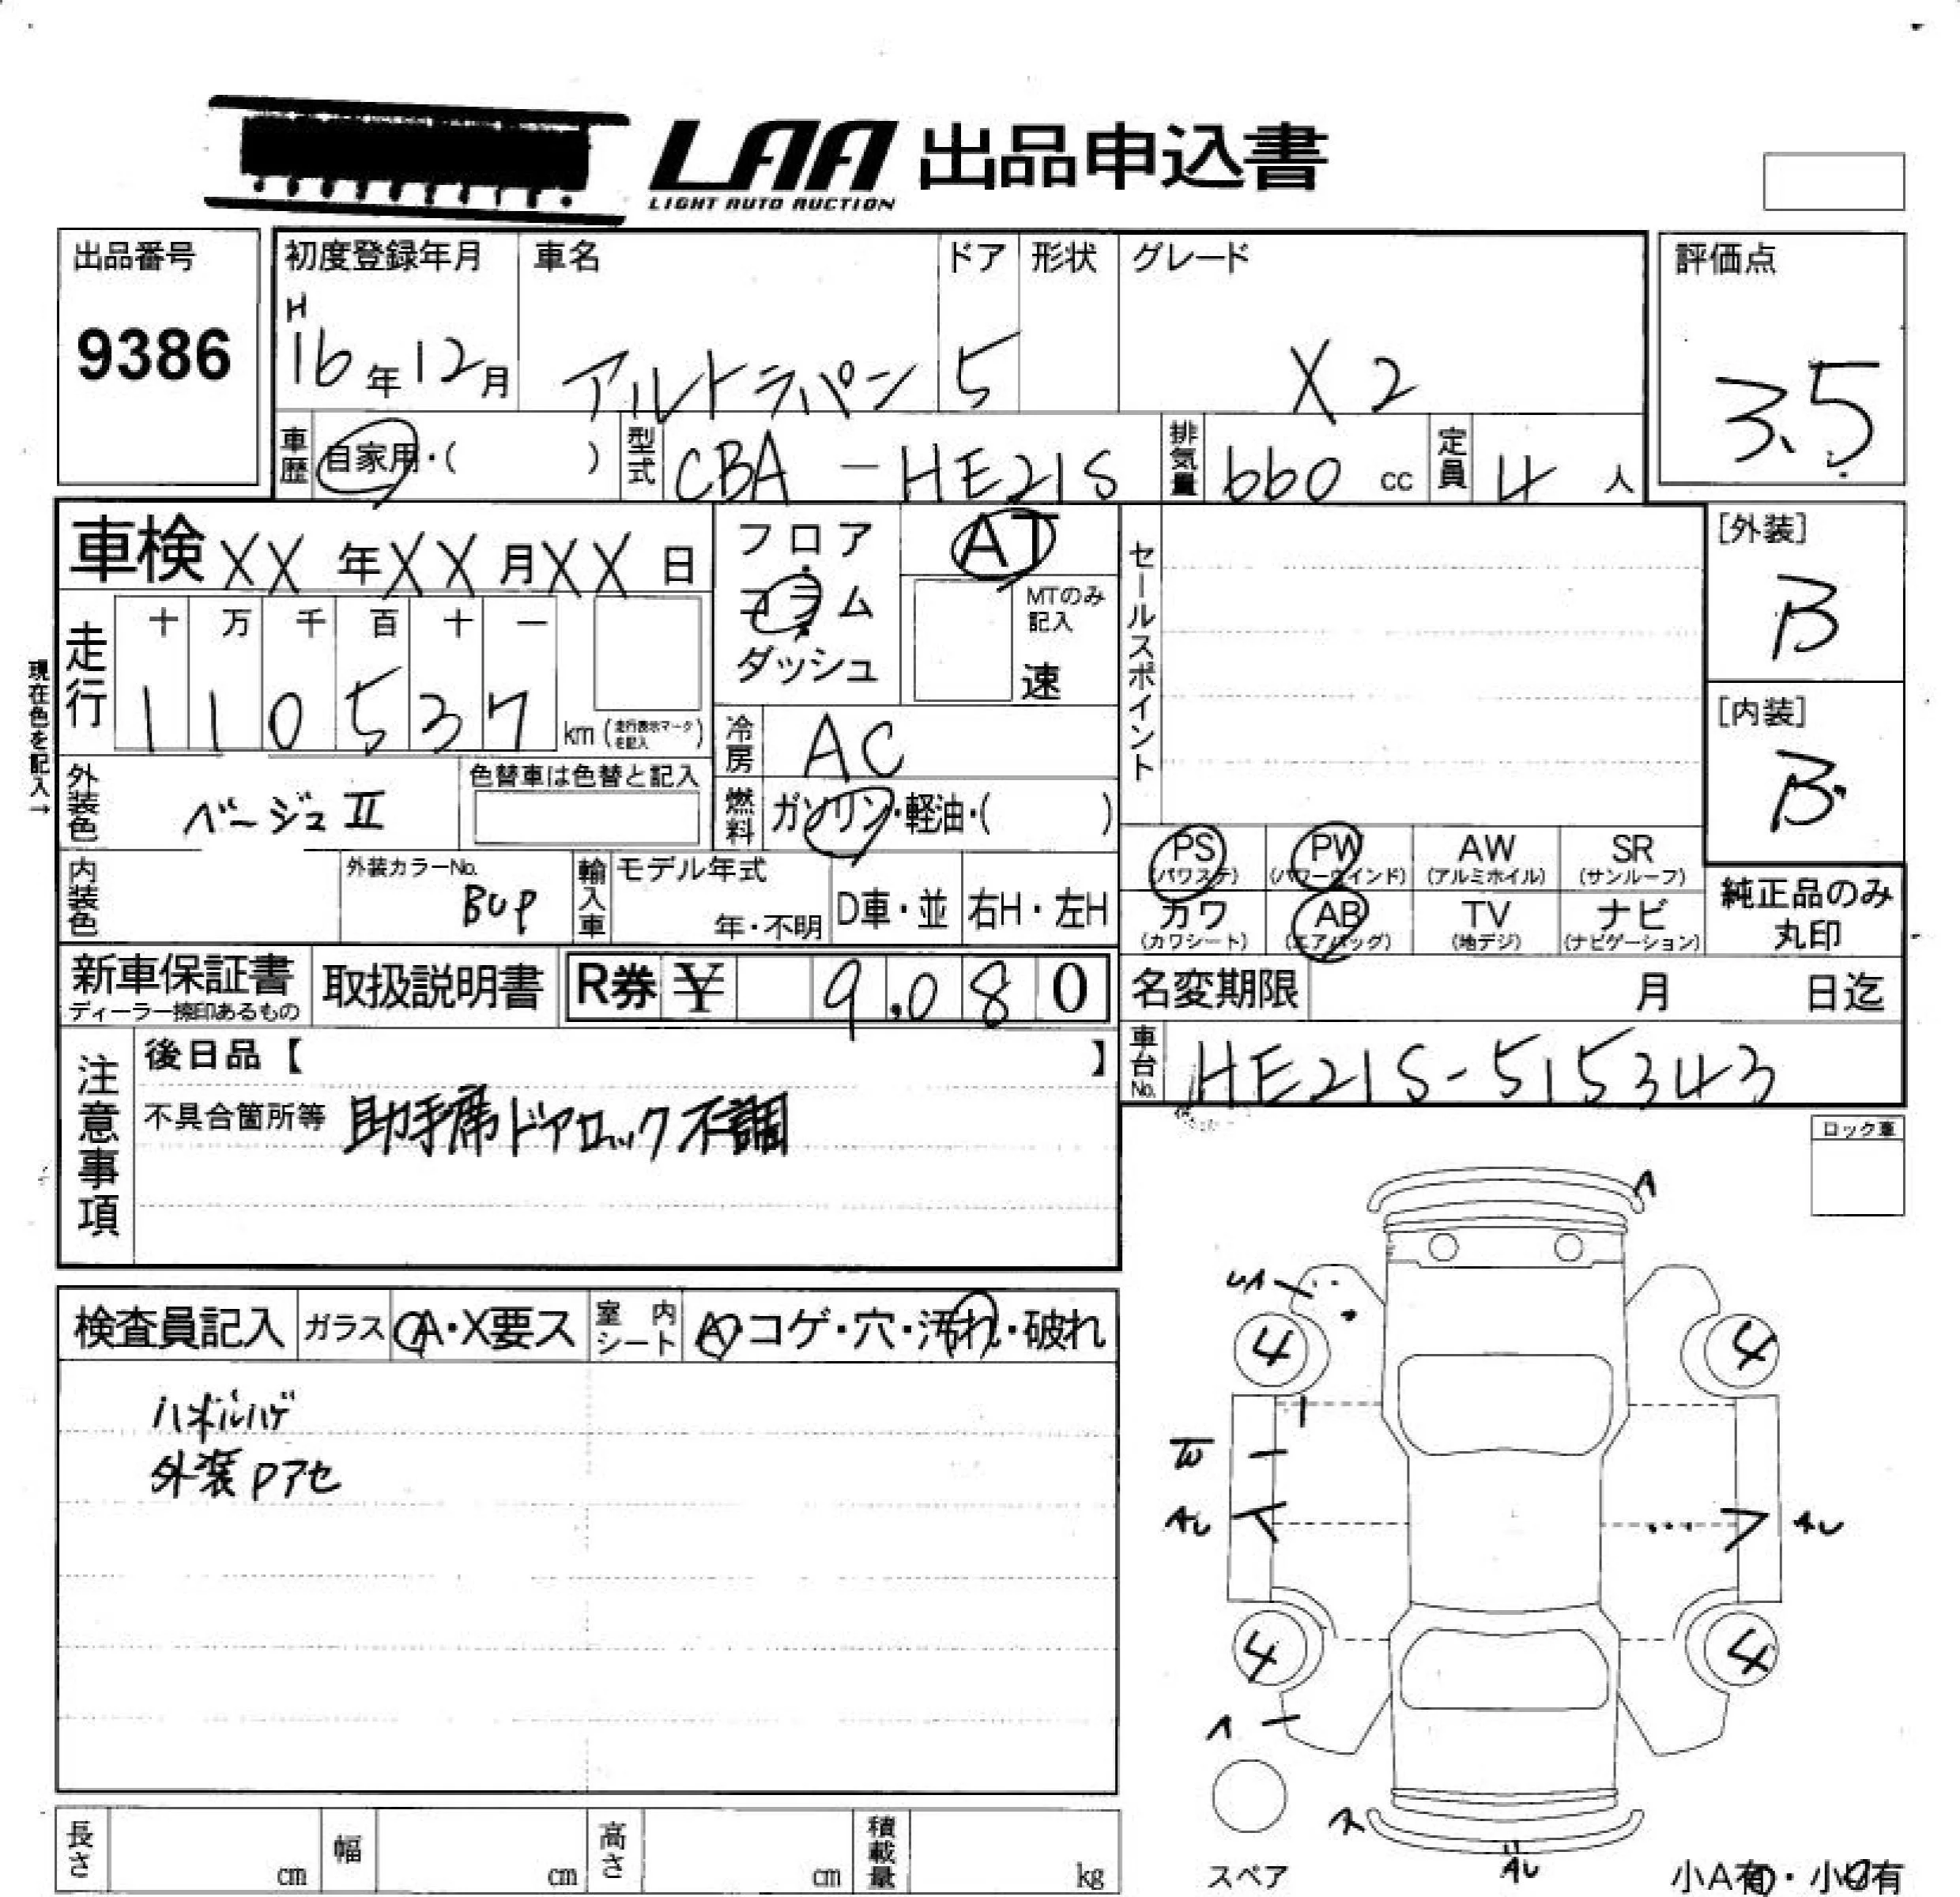 LAA 出品申込書
LIGHT AUTO AUCTION
出品番号
9386
初度登録年月
H
16年12月
車名
アルトラパン
ドア
5
形状
グレード
X2
評価点
3.5
車歴
自家用・( )
型式
CBA - HE21S
排気量
660 cc
定員
4 人
車検 XX 年 XX 月 XX 日
現在色を記入→
走行
十 万 千 百 十 一
1 1 0 5 3 7 km (走行表示マークを記入)
フロア
コラム
ダッシュ
AT
MTのみ記入
速
冷房
AC
燃料
ガソリン・軽油・( )
外装色
ベージュII
色替車は色替と記入
内装色
外装カラーNo.
BUP
輸入車
モデル年式
年・不明
D車・並
右H・左H
セールスポイント
[外装]
B
[内装]
B
PS (パワステ)
PW (パワーウインド)
AW (アルミホイル)
SR (サンルーフ)
カワ (カワシート)
AB (エアバッグ)
TV (地デジ)
ナビ (ナビゲーション)
純正品のみ
丸印
新車保証書
ディーラー捺印あるもの
取扱説明書
R券 ¥ 9.080
名変期限 月 日迄
車台No.
HE21S-515343
注意事項
後日品【 】
不具合箇所等 助手席ドアロック不調
ロック車
検査員記入
ガラス
A・X要ス
室内シート
A・コゲ・穴・汚れ・破れ
ハンドルハゲ
外装Pアセ
A
4
4
W
AL
AL
4
4
A
スペア
AL
長さ cm
幅 cm
高さ cm
積載量 kg
小A有・小U有